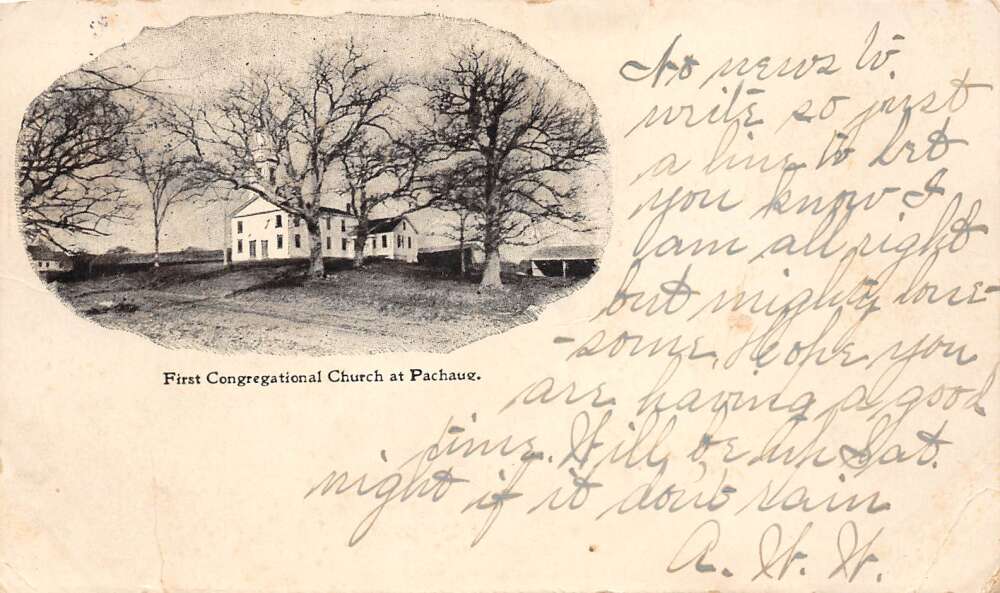 First Congregational Church at Pachaug.
No news to
write so just
a line to let
you know I
am all right
but mighty lone-
-some. Hope you
are having a good
time. Will be up Sat.
night if it don't rain
A. W. W.